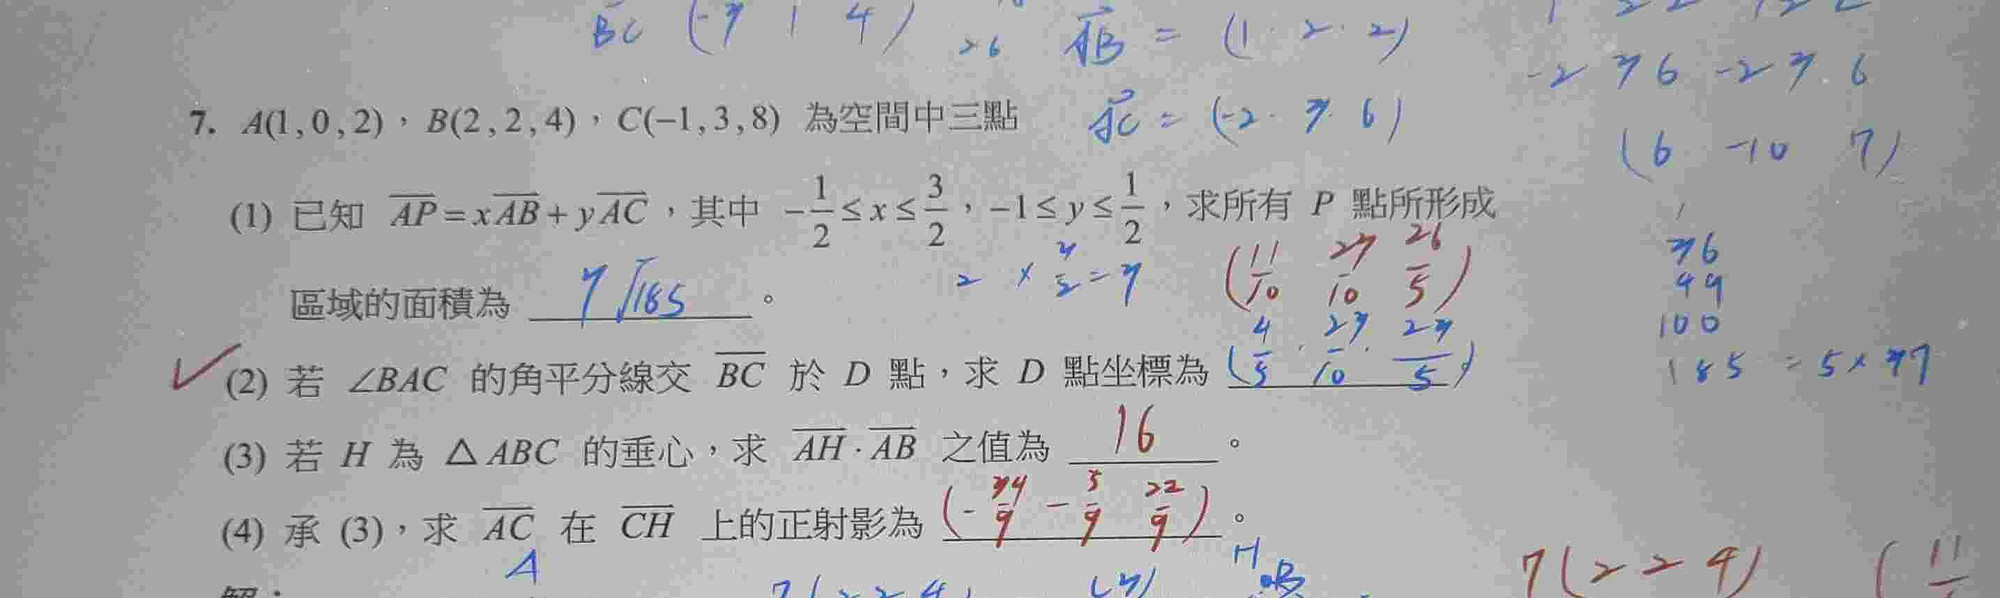 BC (-3 1 4) 26 AB = (1 . 2 . 2)
-2 3 6 -2 3 . 6
7. A(1,0,2),B(2,2,4),C(-1,3,8) 為空間中三點 AC = (-2 . 3 . 6)
(6 -10 7)
(1) 已知 AP=xAB+yAC,其中 -1/2≤x≤3/2,-1≤y≤1/2,求所有 P 點所形成
區域的面積為 3√185 。 2 × 3/2 = 3 (11/10 27/10 26/5)
36
49
100
185 = 5×37
(2) 若 ∠BAC 的角平分線交 BC 於 D 點,求 D 點坐標為 (4/5 . 23/10 . 23/5)
(3) 若 H 為 △ABC 的垂心,求 AH·AB 之值為 16 。
(4) 承 (3),求 AC 在 CH 上的正射影為 (-34/9 -5/9 22/9) 。
A H 7(2 2 4)